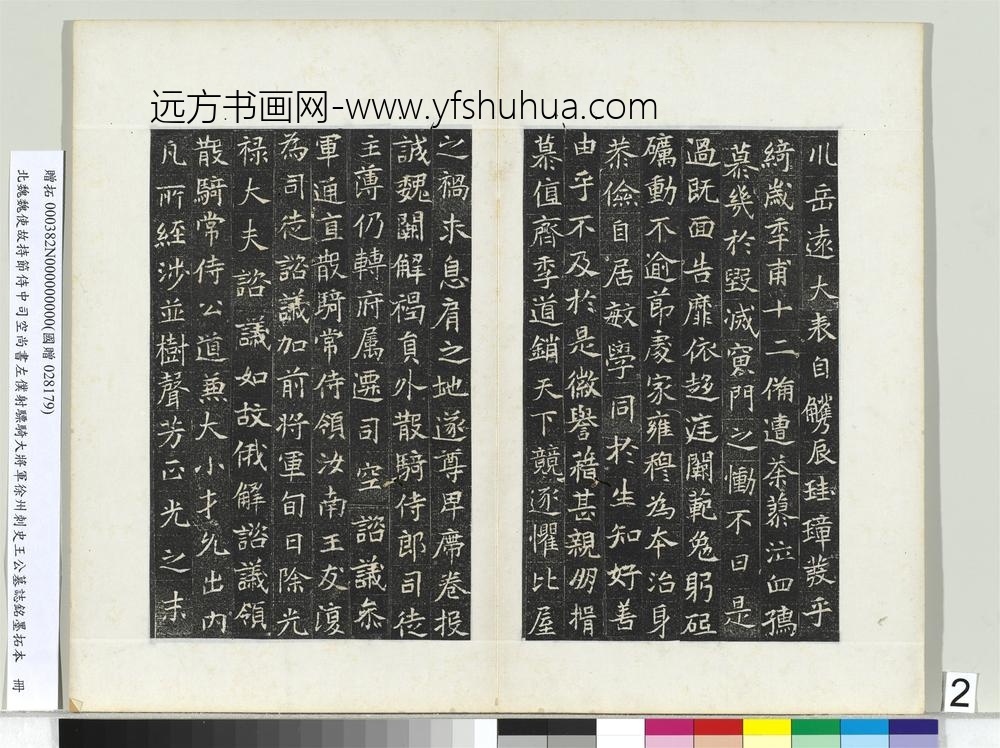 远方书画网-www.yfshuhua.com
川岳遠大表自觿辰珪璋發乎
綺歲季甫十二備遭荼蓼泣血孺
慕幾於毀滅寅門之慟不日是
過既面告靡依趍庭闕範兔躬砥
礪動不逾莭處家雍穆為本治身
恭儉自居敏學同於生知好善
由乎不及於是徽譽藉甚親朋揖
慕值齊季道銷天下競逐懼比屋
之禍求息肩之地遂尊卑席卷投
誠魏闕解褐負外散騎侍郎司徒
主薄仍轉府属遷司空諮議叅
軍通直散騎常侍領汝南王友復
為司徒諮議加前將軍旬日除光
祿大夫諮議如故俄解諮議領
散騎常侍公道兼大小才允出內
凡所經涉並樹聲芳正光之末
贈拓 000382N000000000(國贈 028179)
北魏魏使故持節侍中司空尚書左僕射驃騎大將軍徐州刺史王公墓誌銘墨拓本 冊
2